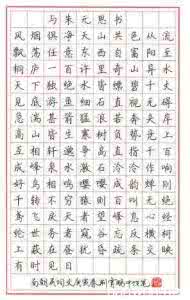 与朱元思书
风烟俱净天山共色从流
飘荡任意东西自富阳至
桐庐一百许里奇山异水
天下独绝水皆缥碧千丈
见底游鱼细石直视无碍
急湍甚箭猛浪若奔夹岸
高山皆生寒树负势竞上
互相轩邈争高直指千百
成峰泉水激石泠泠作响
好鸟相鸣嘤嘤成韵蝉则
千转不穷猿则百叫无绝
鸢飞戾天者望峰息心经
纶世务者窥谷忘反横柯
上蔽在昼犹昏疏条交映
有时见日
南朝吴均文庚寅春月